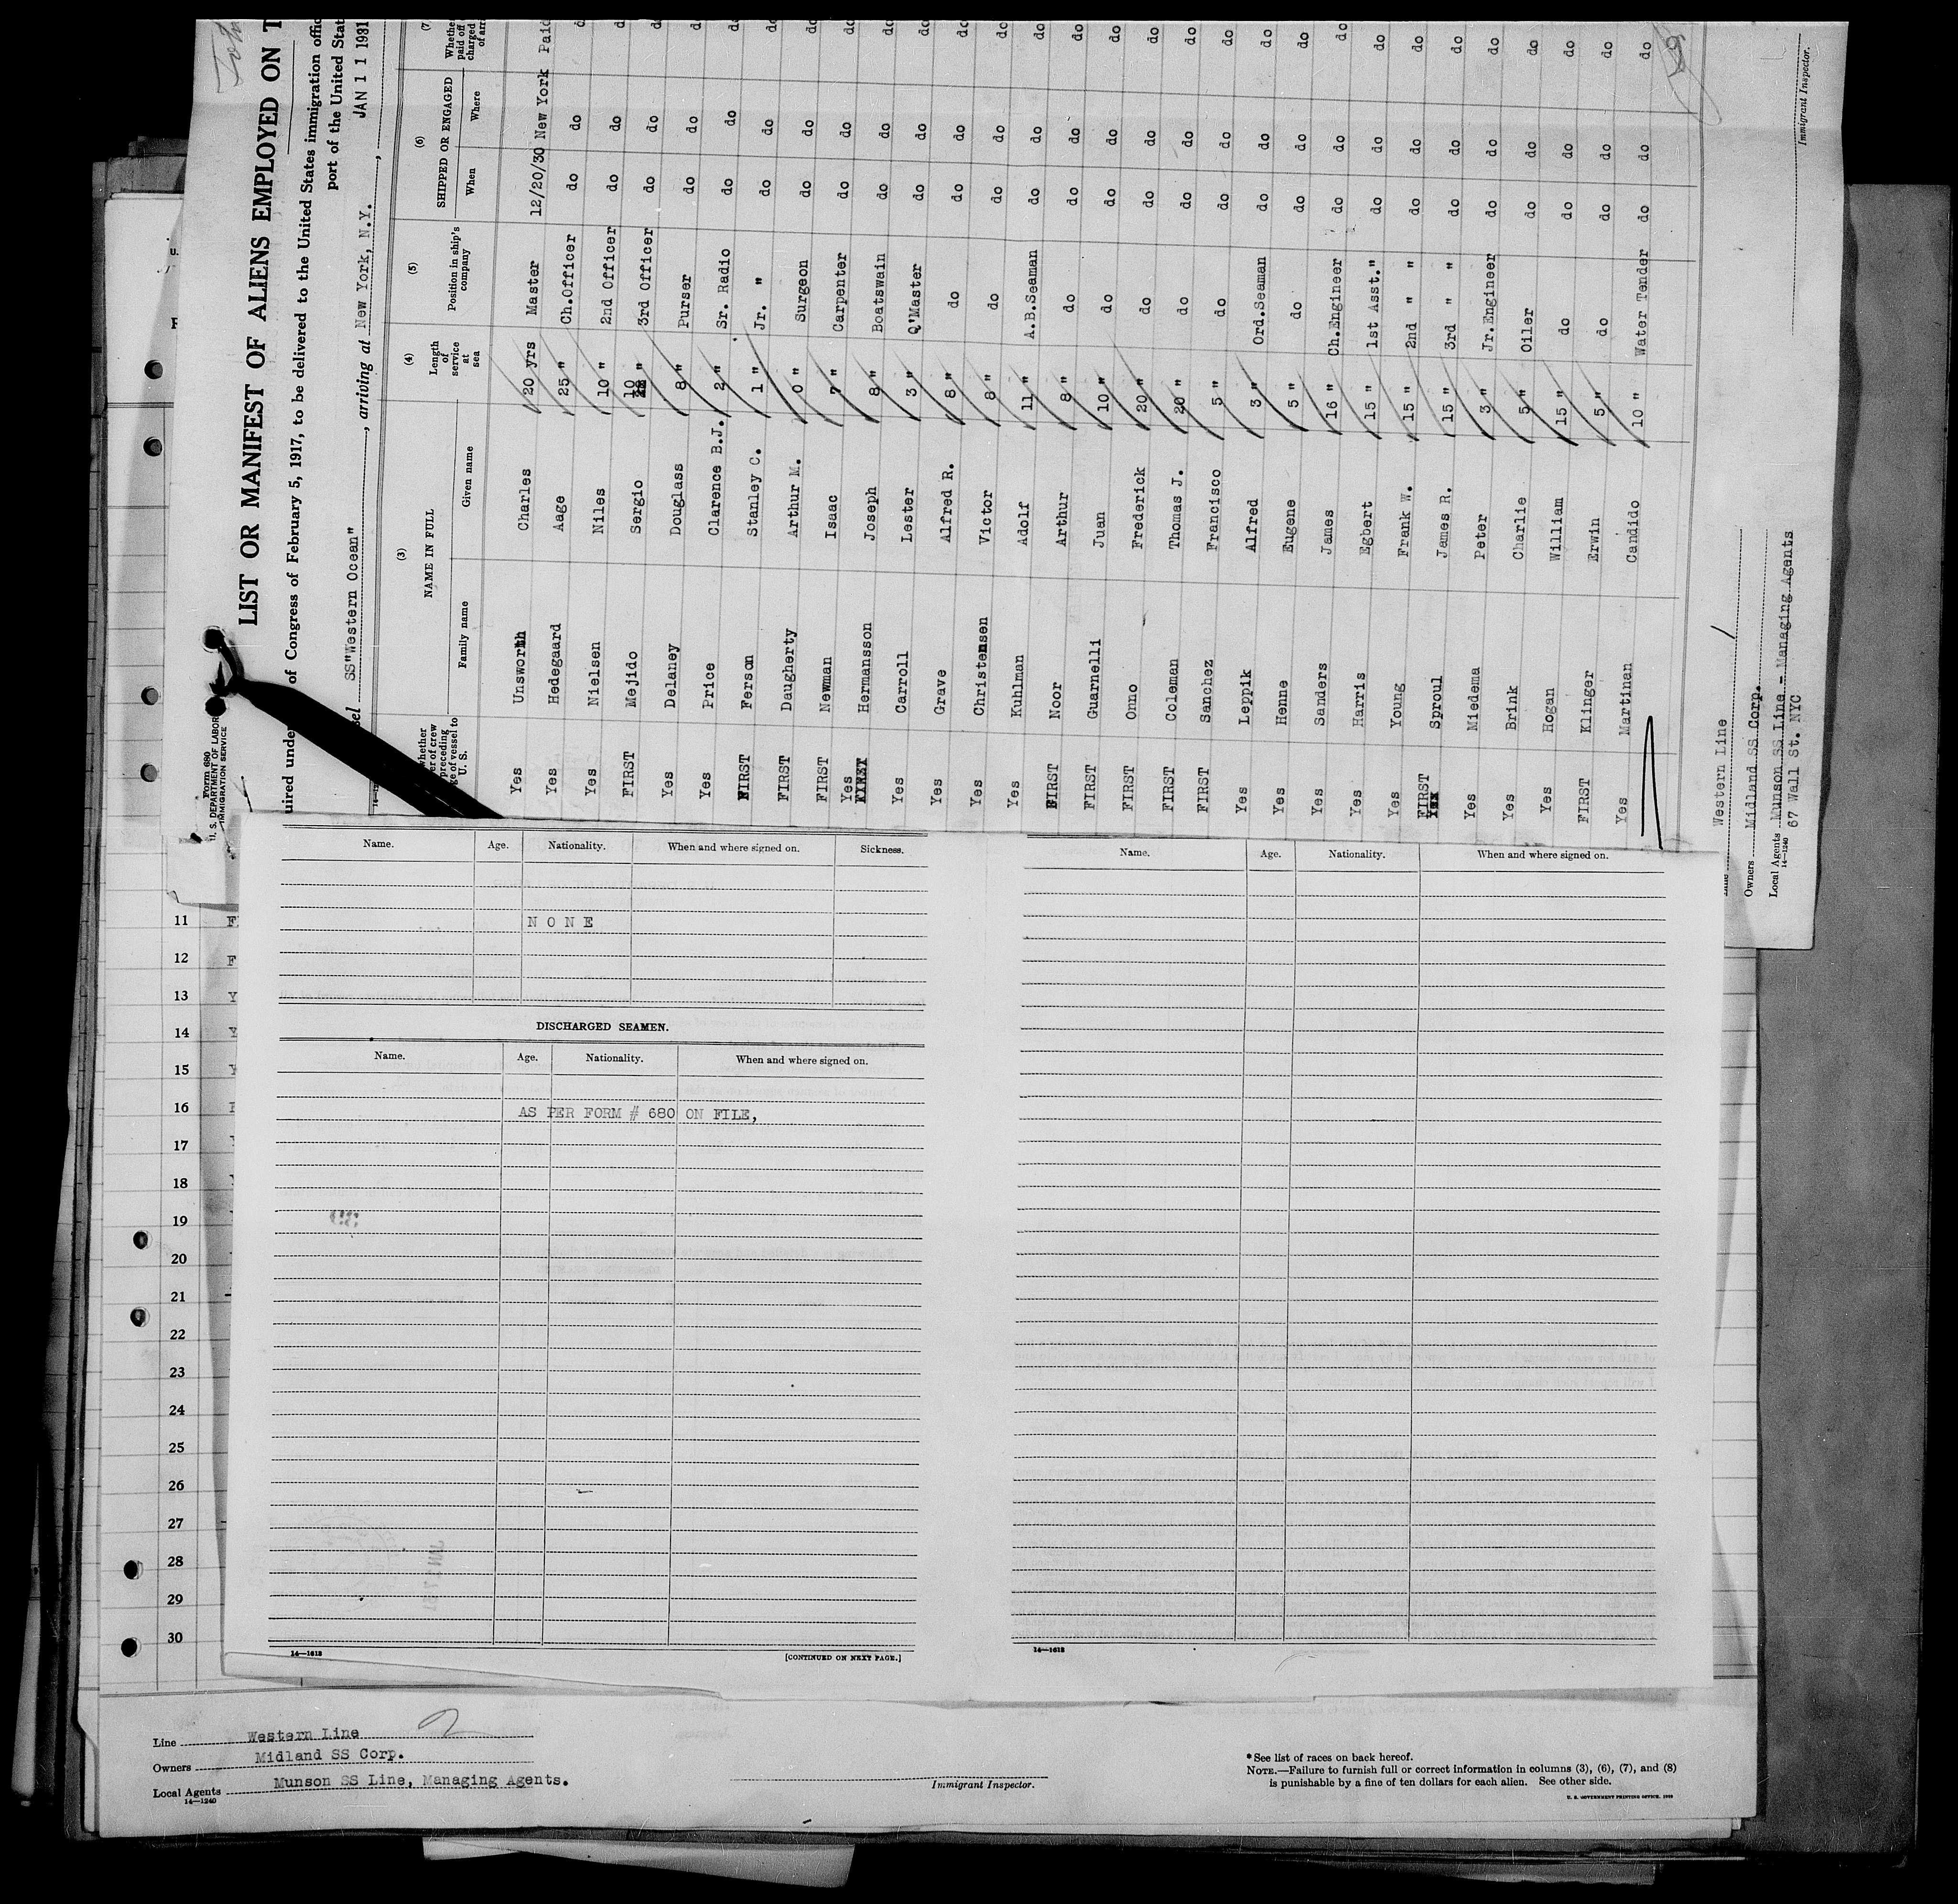 Form 680
U. S. DEPARTMENT OF LABOR
IMMIGRATION SERVICE
LIST OR MANIFEST OF ALIENS EMPLOYED ON T
uired under of Congress of February 5, 1917, to be delivered to the United States immigration offic
port of the United Stat
sel SS"Western Ocean" , arriving at New York, N.Y. , JAN 1 1 1931
(3) (4) (5) (6) (7)
NAME IN FULL Length of service at sea Position in ship's company SHIPPED OR ENGAGED
Family name Given name When Where
Yes Unsworth Charles 20 yrs Master 12/20/30 New York Paid
Yes Hedegaard Aage 25 " Ch.Officer do do
Yes Nielsen Niles 10 " 2nd Officer do do do
FIRST Mejido Sergio 10 " 3rd Officer do do do
Yes Delaney Douglass 8 " Purser do do do
Yes Price Clarence B.J. 2 " Sr. Radio do do do
FIRST Ferson Stanley C. 1 " Jr. " do do do
FIRST Daugherty Arthur M. 0 " Surgeon do do do
FIRST Newman Isaac 7 " Carpenter do do do
Yes FIRST Hermansson Joseph 8 " Boatswain do do do
Yes Carroll Lester 3 " Q'Master do do do
Yes Grave Alfred R. 8 " do do do do
Yes Christensen Victor 8 " do do do do
Yes Kuhlman Adolf 11 " A.B.Seaman do do do
FIRST Noor Arthur 8 " do do do do
FIRST Guarnelli Juan 10 " do do do do
FIRST Onno Frederick 20 " do do do do
FIRST Coleman Thomas J. 20 " do do do do
FIRST Sanchez Francisco 5 " do do do do
Yes Leppik Alfred 3 " Ord.Seaman do do do
Yes Henne Eugene 5 " do do do do
Yes Sanders James 16 " Ch.Engineer do do do
Yes Harris Egbert 15 " 1st Asst." do do do
Yes Young Frank W. 15 " 2nd " " do do do
FIRST Yes Sproul James R. 15 " 3rd " " do do do
Yes Miedema Peter 3 " Jr.Engineer do do do
Yes Brink Charlie 5 " Oiler do do do
Yes Hogan William 15 " do do do do
FIRST Klinger Erwin 5 " do do do do
Yes Martinan Candido 10 " Water Tender do do do
Western Line
Owners Midland SS Corp.
Local Agents Munson SS Line - Managing Agents
14—1240
67 Wall St. NYC
Immigrant Inspector.
Name. Age. Nationality. When and where signed on. Sickness.
NONE
DISCHARGED SEAMEN.
Name. Age. Nationality. When and where signed on.
AS PER FORM # 680 ON FILE,
14—1618
[CONTINUED ON NEXT PAGE.]
Name. Age. Nationality. When and where signed on.
14—1618
11
12
13
14
15
16
17
18
19
20
21
22
23
24
25
26
27
28
29
30
Line Western Line
Owners Midland SS Corp.
Local Agents Munson SS Line, Managing Agents.
14—1240
Immigrant Inspector.
*See list of races on back hereof.
NOTE.—Failure to furnish full or correct information in columns (3), (6), (7), and (8)
is punishable by a fine of ten dollars for each alien. See other side.